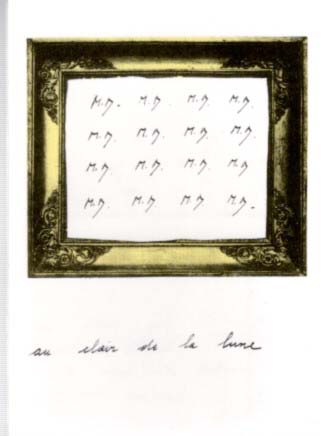 M.D. M.D. M.D. M.D.
M.D. M.D. M.D. M.D.
M.D. M.D. M.D. M.D.
M.D. M.D. M.D. M.D.
au clair de la lune